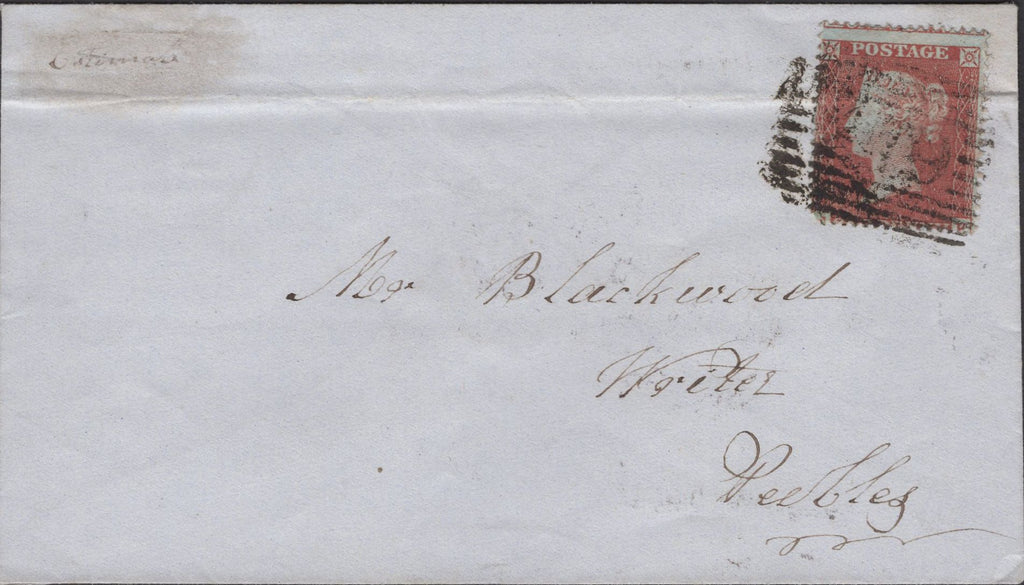 Estimate
POSTAGE
Mr Blackwood
Writer
Peebles